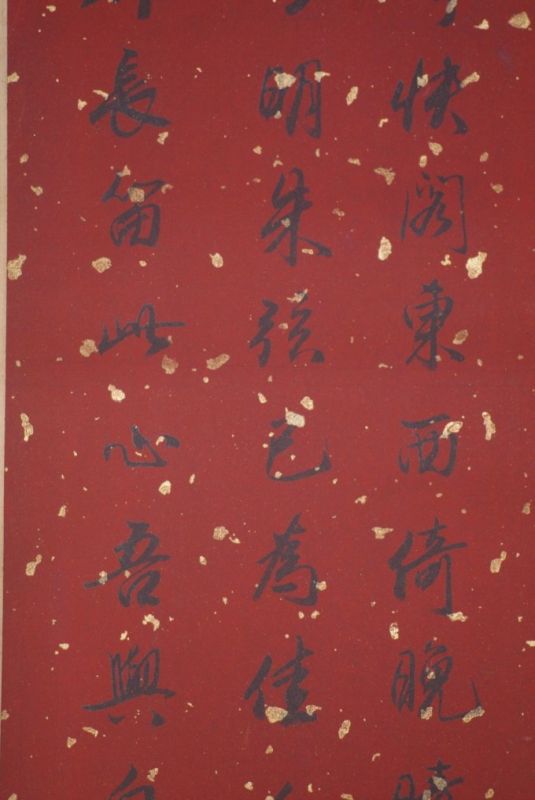 快閣東西倚晚晴
明朱弦已為佳
長笛此心吾與